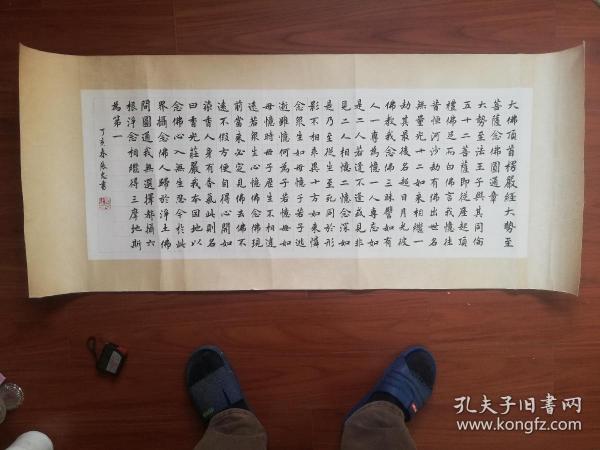 大佛頂首楞嚴經大勢至
菩薩念佛圓通章
大勢至法王子與其同倫
五十二菩薩即從座起頂
禮佛足而白佛言我憶往
昔恒河沙劫有佛出世名
無量光十二如來相繼一
劫其最後名超日月光彼
佛教我念佛三昧譬如有
人一專為憶一人專忘如
是二人若逢不逢或見非
見二人相憶二憶念深如
是乃至從生至生至同於形
影不相乖異十方如來憐
念眾生如母憶子若子逃
逝雖憶何為子若憶母如
母憶時母子歷生不相違
遠若眾生心憶佛念佛現
前當來必定見佛去佛不
遠不假方便自得心開如
染香人身有香氣此則名
曰香光莊嚴我本因地以
念佛心入無生忍今於此
界攝念佛人歸於淨土佛
問圓通我無選擇都攝六
根淨念相繼得三摩地斯
為第一
丁亥春張文書
孔夫子旧书网
www.kongfz.com